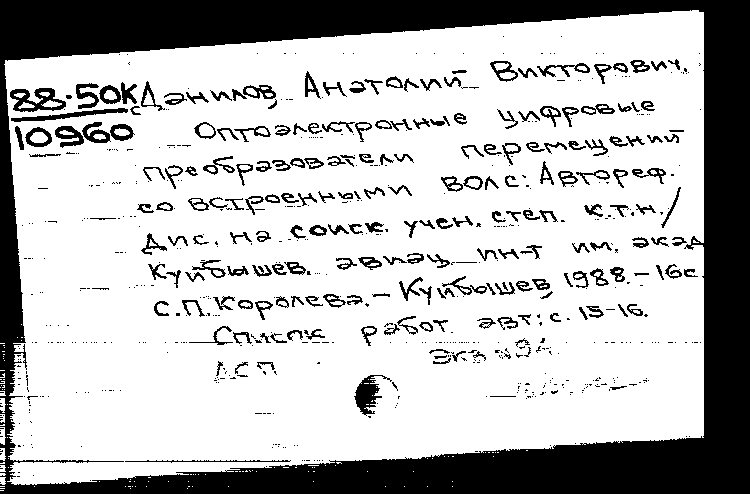 88-50К Данилов Анатолий Викторович.
с
10960 Оптоэлектронные цифровые
преобразователи перемещений
со встроенными ВОЛС: Автореф.
дис. на соиск. учен. степ. к.т.н./
Куйбышев. авиац ин-т им. акад
С.П. Королева. – Куйбышев, 1988. – 16с.
Список работ авт: с. 15-16.
ДСП Экз №94